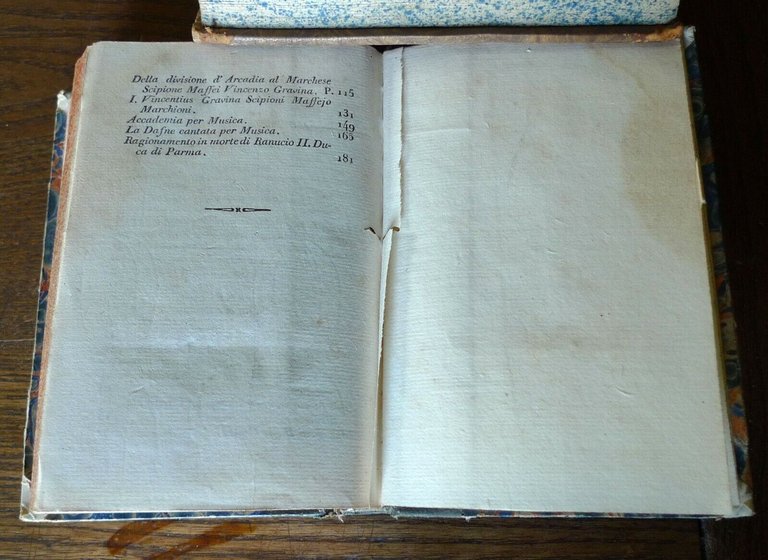 Della divisione d'Arcadia al Marchese
Scipione Maffei Vincenzo Gravina. P. 115
I. Vincentius Gravina Scipioni Maffejo
Marchioni. 131
Accademia per Musica. 149
La Dafne cantata per Musica. 165
Ragionamento in morte di Ranucio II. Du-
ca di Parma. 181